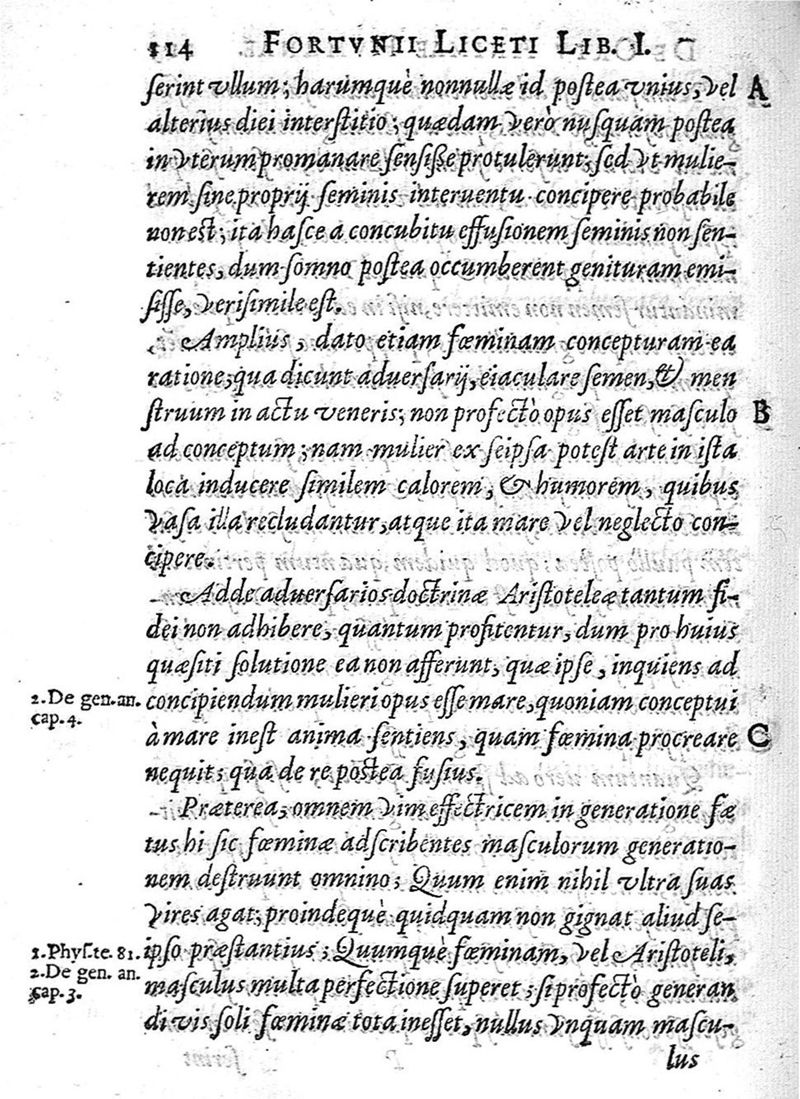 114 FORTVNII LICETI LIB. I.
ſerint vllum; harumquè nonnullæ id poſtea vnius, vel A
alterius diei interſtitio; quædam verò nuſquam poſtea
in vterum promanare ſenſiſſe protulerunt: ſed vt mulie-
rem ſine proprij ſeminis interuentu concipere probabile
non est; ita haſce a concubitu effuſionem ſeminis non ſen-
tientes, dum ſomno poſtea occumberent genituram emi-
ſiſſe, veriſimile eſt.
Amplius, dato etiam fœminam concepturam ea
ratione, qua dicunt aduerſarij, eiaculare ſemen, & men
ſtruum in actu veneris; non profectò opus eſſet maſculo B
ad conceptum; nam mulier ex ſeipſa poteſt arte in iſta
loca inducere ſimilem calorem, & humorem, quibus
vaſa illa recludantur, atque ita mare vel neglecto con-
cipere.
Adde aduerſarios doctrinæ Ariſtoteleæ tantum fi-
dei non adhibere, quantum profitentur, dum pro huius
quæſiti ſolutione ea non afferunt, quæ ipſe, inquiens ad
2. De gen. an. concipiendum mulieri opus eſſe mare, quoniam conceptui
cap. 4.
à mare ineſt anima ſentiens, quam fœmina procreare C
nequit; qua de re poſtea fuſius.
Præterea, omnem vim effectricem in generatione fæ
tus hi ſic fœminæ adſcribentes maſculorum generatio-
nem deſtruunt omnino; Quum enim nihil vltra ſuas
vires agat; proindequè quidquam non gignat aliud ſe-
1. Phyſ. te. 81. ipſo præſtantius; Quumquè fœminam, vel Ariſtoteli,
2. De gen. an.
cap. 3. maſculus multa perfectione ſuperet; ſi profectò generan
di vis ſoli fœminæ tota ineſſet, nullus vnquam maſcu-
lus